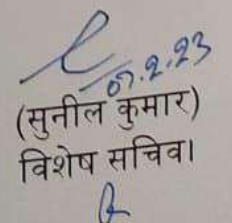 07.2.23
(सुनील कुमार)
विशेष सचिव।